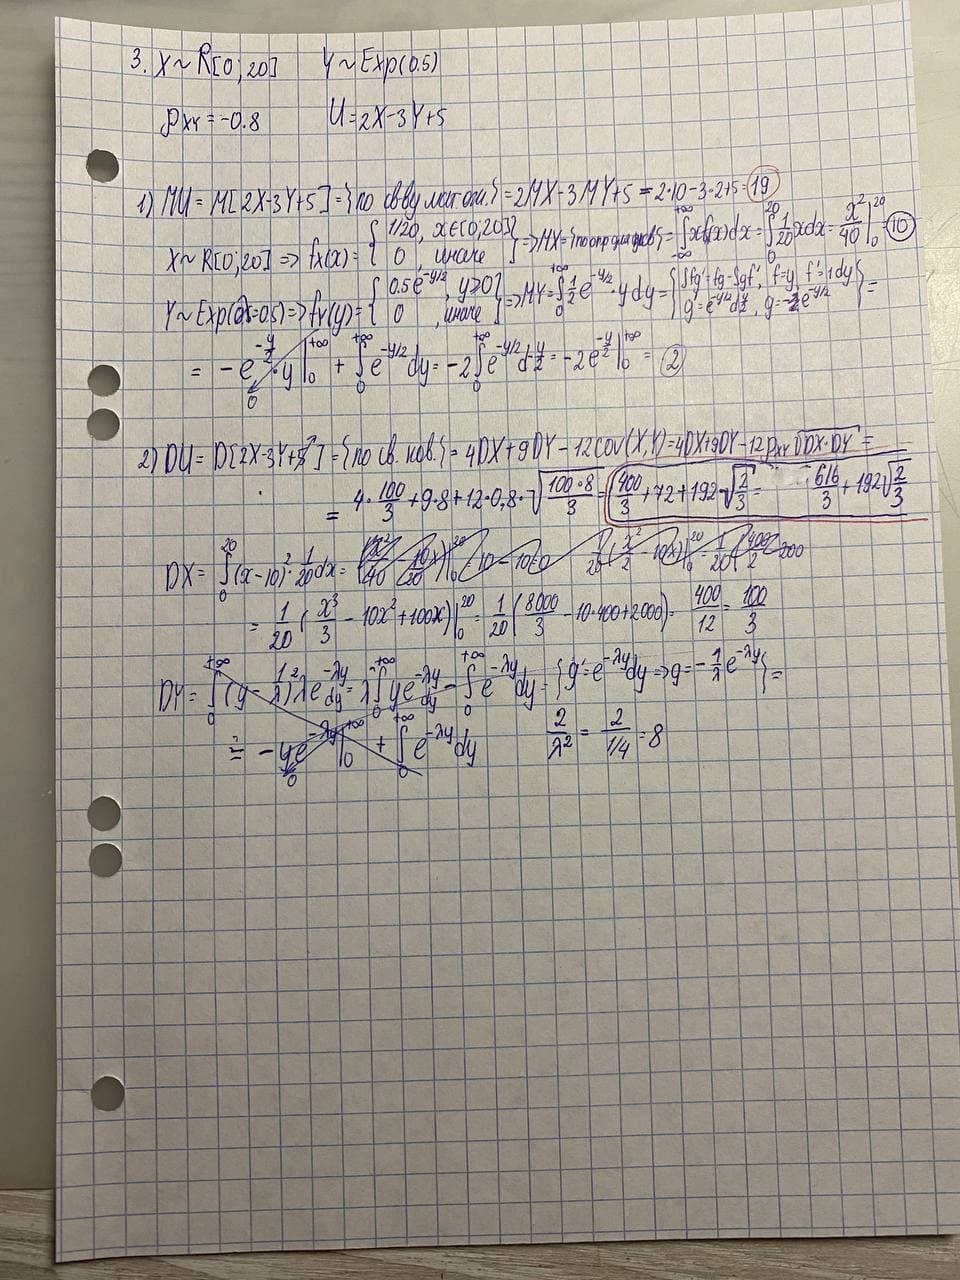 3. X ~ R[0; 20] Y ~ Exp(0.5)
ρ_XY = -0.8 U = 2X-3Y+5
1) MU = M[2X-3Y+5] = {по св-ву мат. ож.} = 2MX-3MY+5 = 2·10-3·2+5 = 19
X ~ R[0;20] => fx(x) = { 1/20, x∈[0;20] ; 0, иначе } => MX = = ∫_{-∞}^{+∞} x f(x)dx = ∫_0^{20} 1/20 x dx = x²/40 |_0^{20} = 10
Y ~ Exp(λ=0.5) => fy(y) = { 0.5e^{-y/2}, y≥0 ; 0, иначе } => MY = ∫_0^{+∞} 1/2 e^{-y/2}·y dy = { ∫fg' = fg - ∫gf', f=y, f'=1dy ; g' = e^{-y/2} d y/2, g = -2e^{-y/2} } =
= -e^{-y/2}·y |_0^{+∞} + ∫_0^{+∞} e^{-y/2} dy = -2 ∫_0^{+∞} e^{-y/2} d -y/2 = -2e^{-y/2} |_0^{+∞} = 2
0
2) DU = D[2X-3Y+5] = {по св. ков.} = 4DX+9DY-12cov(X,Y) = 4DX+9DY-12ρ_XY √(DX·DY) =
= 4·100/3 + 9·8 + 12·0,8·√(100·8/3) = 400/3 + 72 + 192·√(2/3) = 616/3 + 192√(2/3)
DX = ∫_0^{20} (x-10)²·1/20 dx =
= 1/20 (x³/3 - 10x² + 100x) |_0^{20} = 1/20 (8000/3 - 10·400 + 2000) = 400/12 = 100/3
DY = ∫_0^{+∞} (y - 1/λ)² λe^{-λy} dy = λ ∫_0^{+∞} ye^{-λy} dy - ∫_0^{+∞} e^{-λy} dy = {g' = e^{-λy} dy => g = -1/λ e^{-λy}} =
= -ye^{-λy} |_0^{+∞} + ∫_0^{+∞} e^{-λy} dy 2/λ² = 2/(1/4) = 8
0